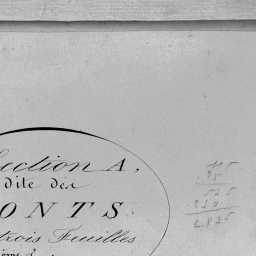 Section A,
dite des
ONTS
trois Feuilles
115
25
575
230
2875